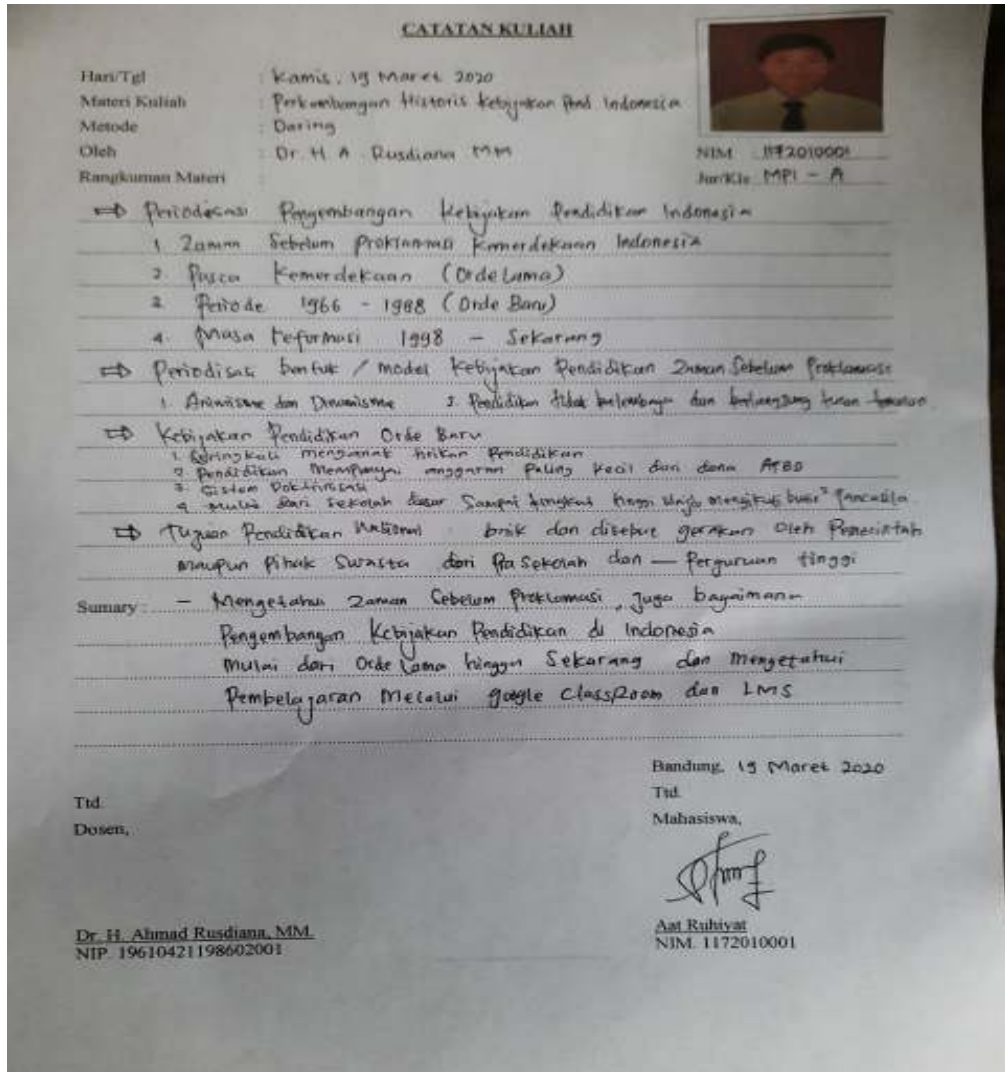 CATATAN KULIAH
Hari/Tgl : Kamis, 19 Maret 2020
Materi Kuliah : Perkembangan Historis Kebijakan Pend Indonesia
Metode : Daring
Oleh : Dr. H. A. Rusdiana MM
NIM : 1172010001
Rangkuman Materi :
Jur/Kls MPI - A
⇒ Periodesasi Pengembangan Kebijakan Pendidikan Indonesia
1. Zaman Sebelum Proklamasi Kemerdekaan Indonesia
2. Pasca Kemerdekaan (Orde Lama)
3. Periode 1966 - 1988 (Orde Baru)
4. Masa reformasi 1998 - Sekarang
⇒ Periodisasi bentuk / model Kebijakan Pendidikan Zaman Sebelum Proklamasi
1. Animisme dan Dinamisme 2. Pendidikan tidak berlembaga dan berlangsung turun temurun
⇒ Kebijakan Pendidikan Orde Baru
1. Seringkali menganak tirikan Pendidikan
2. Pendidikan Mempunyai anggaran Paling Kecil dari dana
3. Sistem Doktrinisasi
4. Mulai dari sekolah dasar Sampai tingkat tinggi wajib mengikuti butir² Pancasila
⇒ Tujuan Pendidikan Nasional : baik dan disebut gerakan Oleh Pemerintah
maupun Pihak Swasta dari Pra Sekolah dan — Perguruan tinggi
Sumary : - Mengetahui Zaman Sebelum Proklamasi, Juga bagaimana
Pengembangan Kebijakan Pendidikan di Indonesia
Mulai dari Orde Lama hingga Sekarang dan Mengetahui
Pembelajaran Melalui google ClassRoom dan LMS
Bandung, 19 Maret 2020
Ttd.
Ttd.
Mahasiswa,
Dosen,
Dr. H. Ahmad Rusdiana, MM.
NIP. 19610421198602001
Aat Ruhiyat
NIM. 1172010001